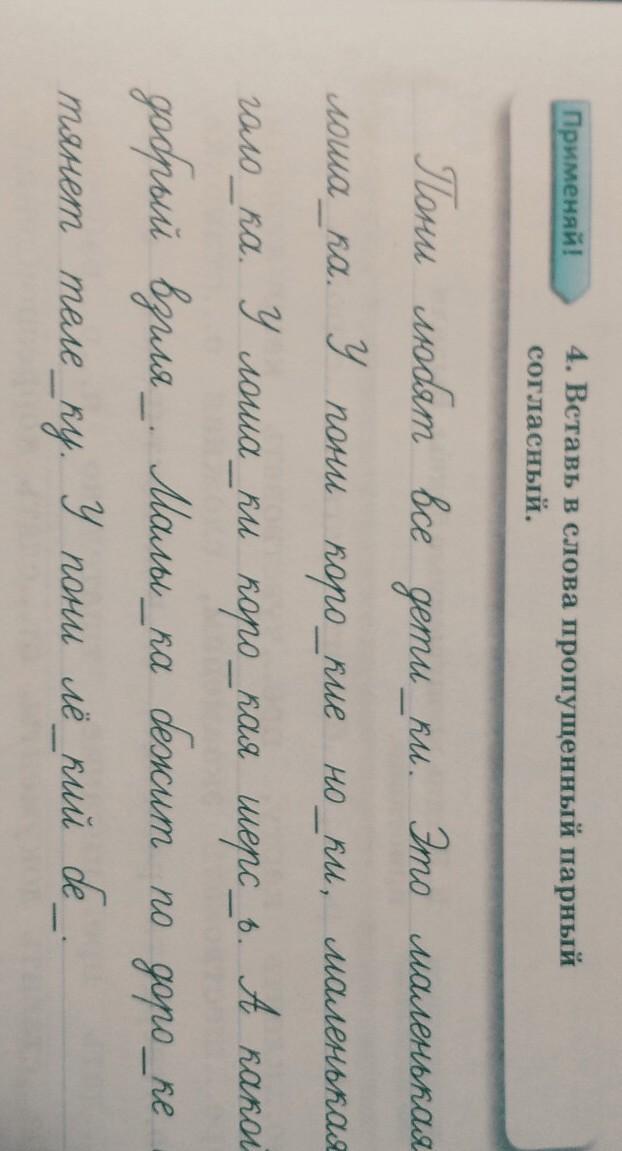 Применяй!
4. Вставь в слова пропущенный парный
согласный.
Пони любят все дети_ки. Это маленькая
лоша_ка. У пони коро_кие но_ки, маленькая
голо_ка. У лоша_ки коро_кая шерс_ь. А какой
добрый взгля_. Малы_ка бежит по доро_ке
тянет теле_ку. У пони лё_кий бе_.